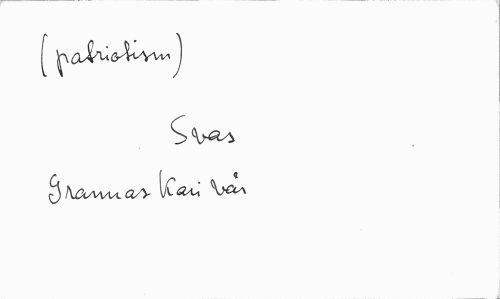 (patriotism)
Svas
Grannas Kari vår